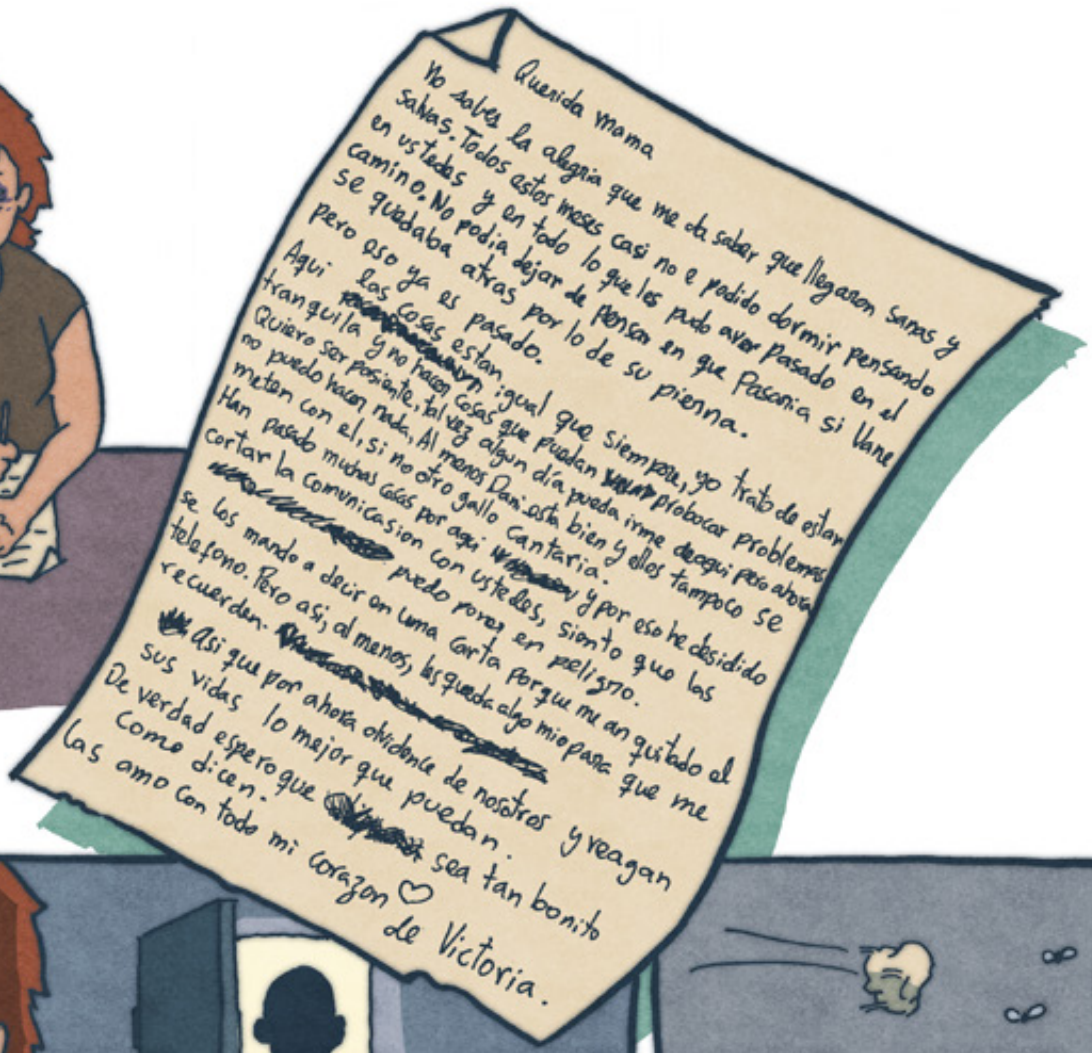 Querida mama
No sabes la alegria que me da saber que llegaron sanas y
salvas. Todos estos meses casi no e podido dormir pensando
en ustedes y en todo lo que les pudo aver pasado en el
camino. No podia dejar de pensar en que pasaria si Vane
se quedaba atras por lo de su pierna.
pero eso ya es pasado.
Aqui las cosas estan igual que siempre, yo trato de estar
tranquila y no hacer cosas que puedan probocar problemas
Quiero ser pasiente, tal vez algun día pueda irme deaqui pero ahora
no puedo hacer nada, Al menos Dani esta bien y ellos tampoco se
meten con el, si no otro gallo cantaria.
Han pasado muchas cosas por aqui y por eso he desidido
cortar la comunicasion con ustedes, siento que las
puedo poner en peligro.
se los mando a decir en una carta porque me an quitado el
telefono. Pero asi, al menos, les queda algo mio para que me
recuerden.
Asi que por ahora olvidence de nosotros y reagan
sus vidas lo mejor que puedan.
De verdad espero que sea tan bonito
como dicen.
las amo con todo mi corazon ♡
de Victoria.